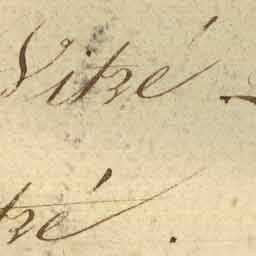 Vitré
tré.